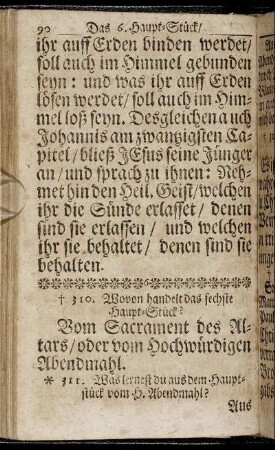 90 Das 6. Haupt-Stück/
ihr auff Erden binden werdet/
soll auch im Himmel gebunden
seyn: und was ihr auff Erden
lösen werdet/ soll auch im Him-
mel loß seyn. Desgleichen auch
Johannis am zwantzigsten Ca-
pitel/ bließ JEsus seine Jünger
an/ und sprach zu ihnen: Neh-
met hin den Heil. Geist/ welchen
ihr die Sünde erlasset/ denen
sind sie erlassen/ und welchen
ihr sie behaltet/ denen sind sie
behalten.
† 310. Wovon handelt das sechste
Haupt-Stück?
Vom Sacrament des Al-
tars/ oder vom Hochwürdigen
Abendmahl.
* 311. Was lernest du aus dem Haupt-
stück vom H. Abendmahl?
Aus